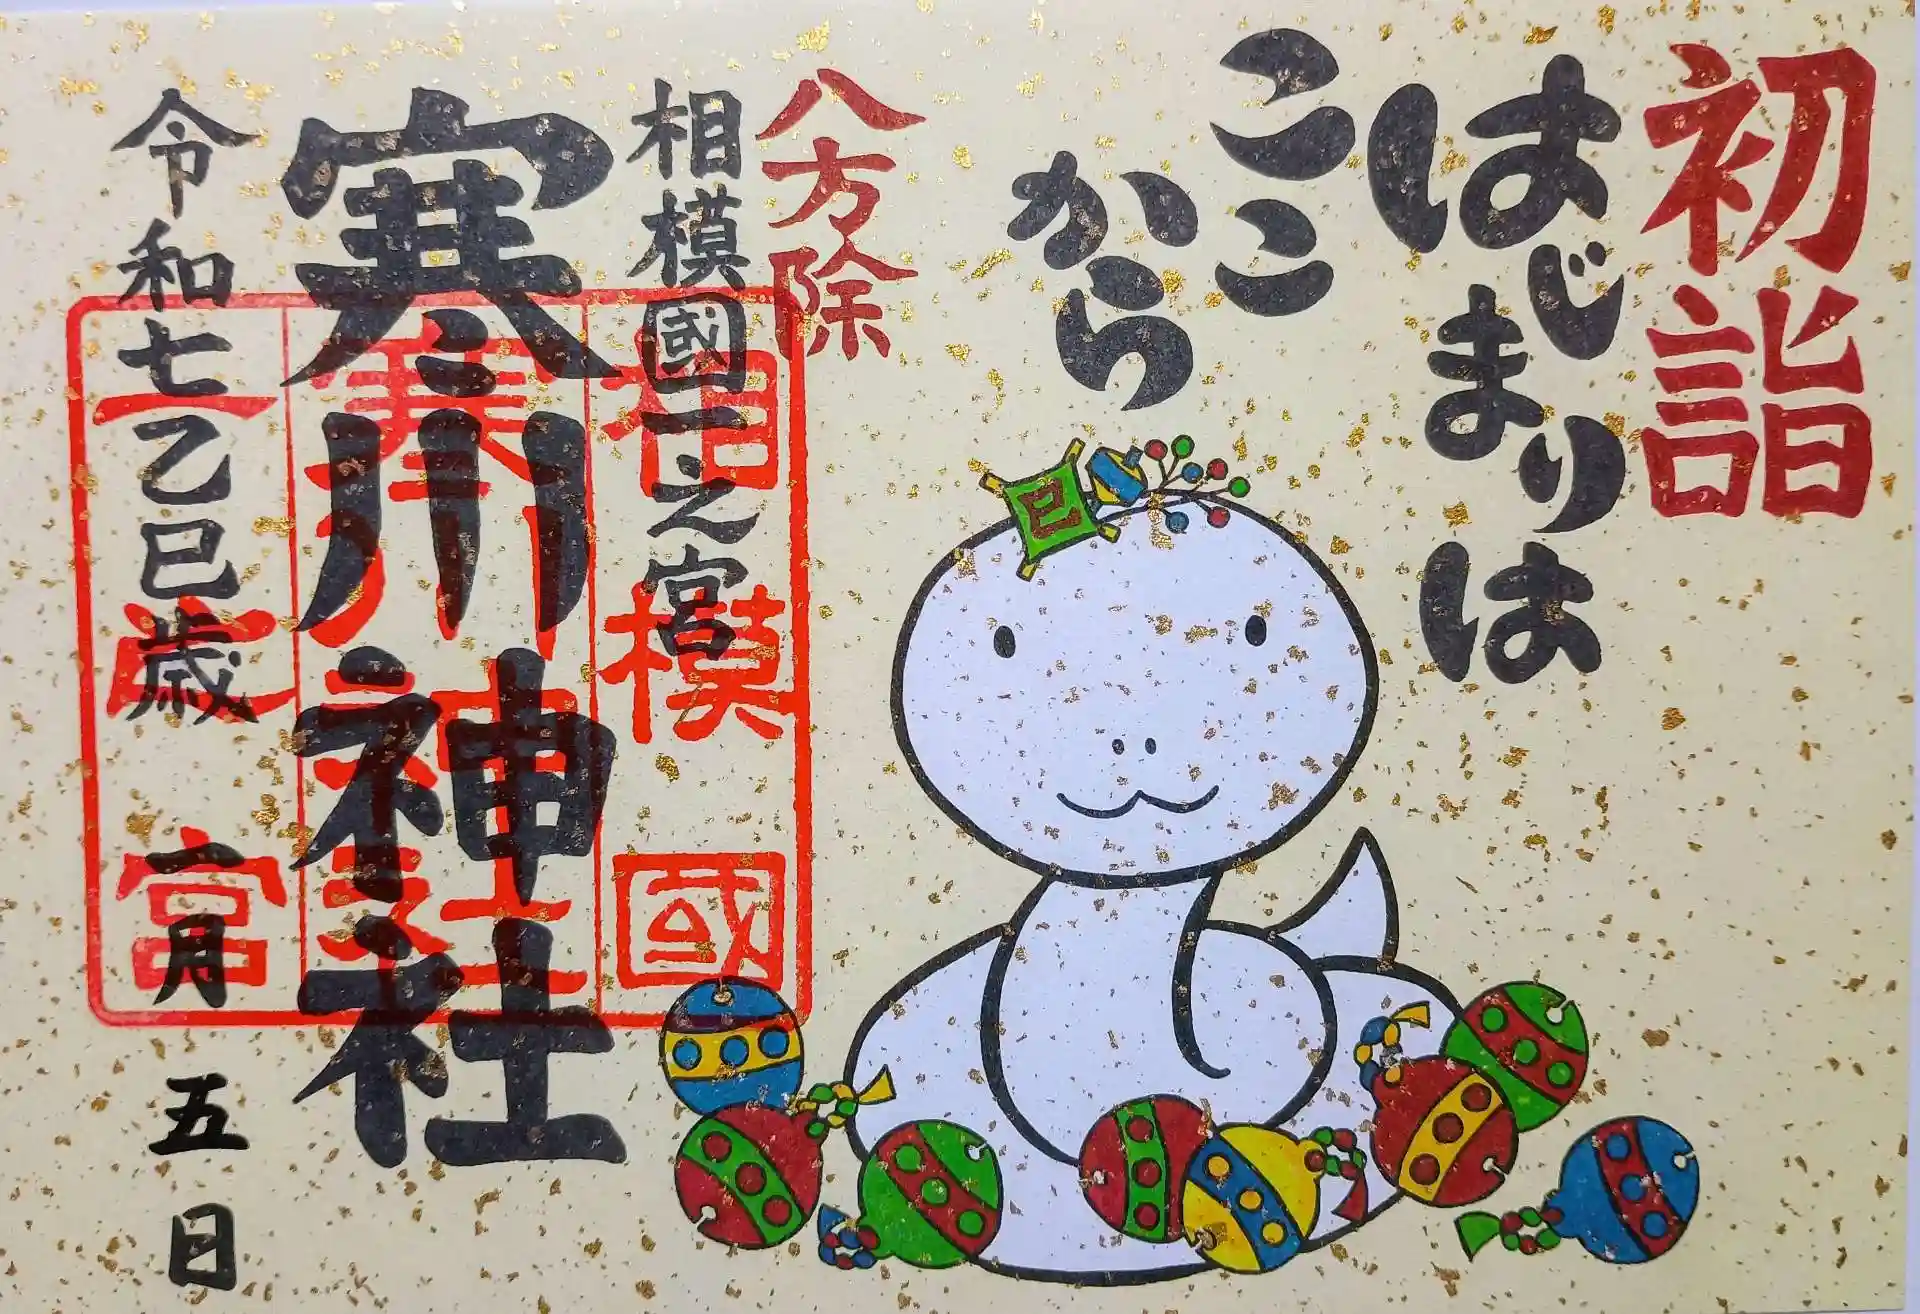 初詣
はじまりは
ここ
から
八方除
相模國一之宮
寒川神社
令和七乙巳歳 一月 五日
巳
相模國
寒川神社
一之宮